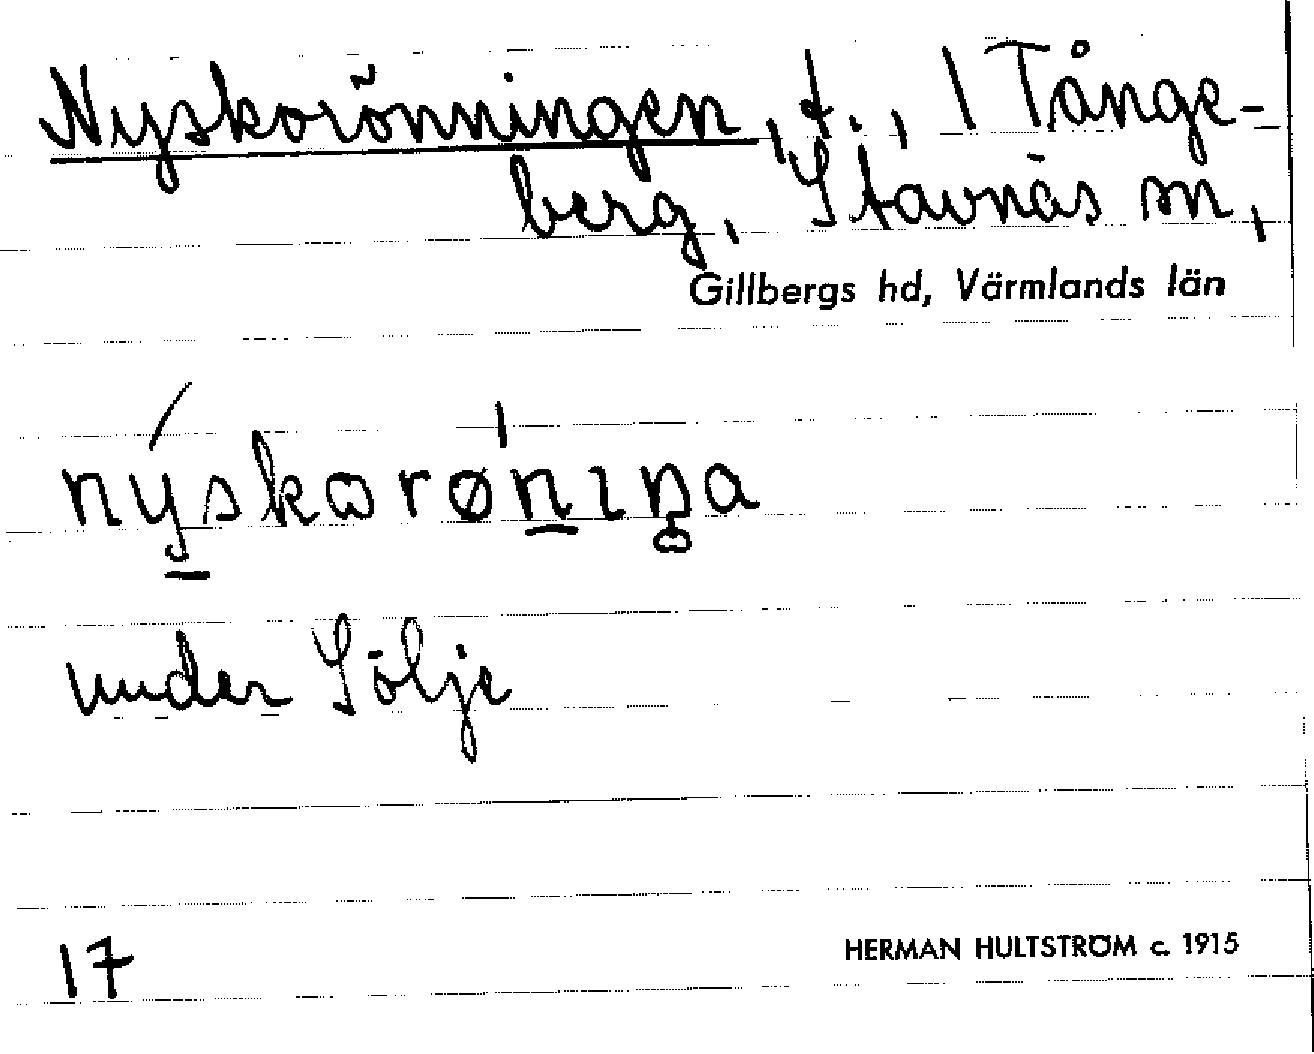 Nyskorönningen, t., 1 Tånge-
berg, Stavnäs sn,
Gillbergs hd, Värmlands län
nýskωrønıŋa
under Sölje
17
HERMAN HULTSTRÖM c. 1915